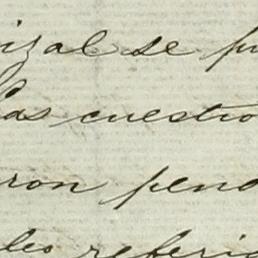 izal se pu
las cuestio
ron pend
les referid